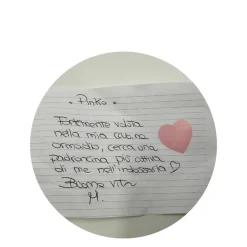 • Pinko •
Fortemente voluta
nella mia cabina
armadio, cerca una
padroncina più attiva
di me nell'indossarla ♡
Buona vita
M.